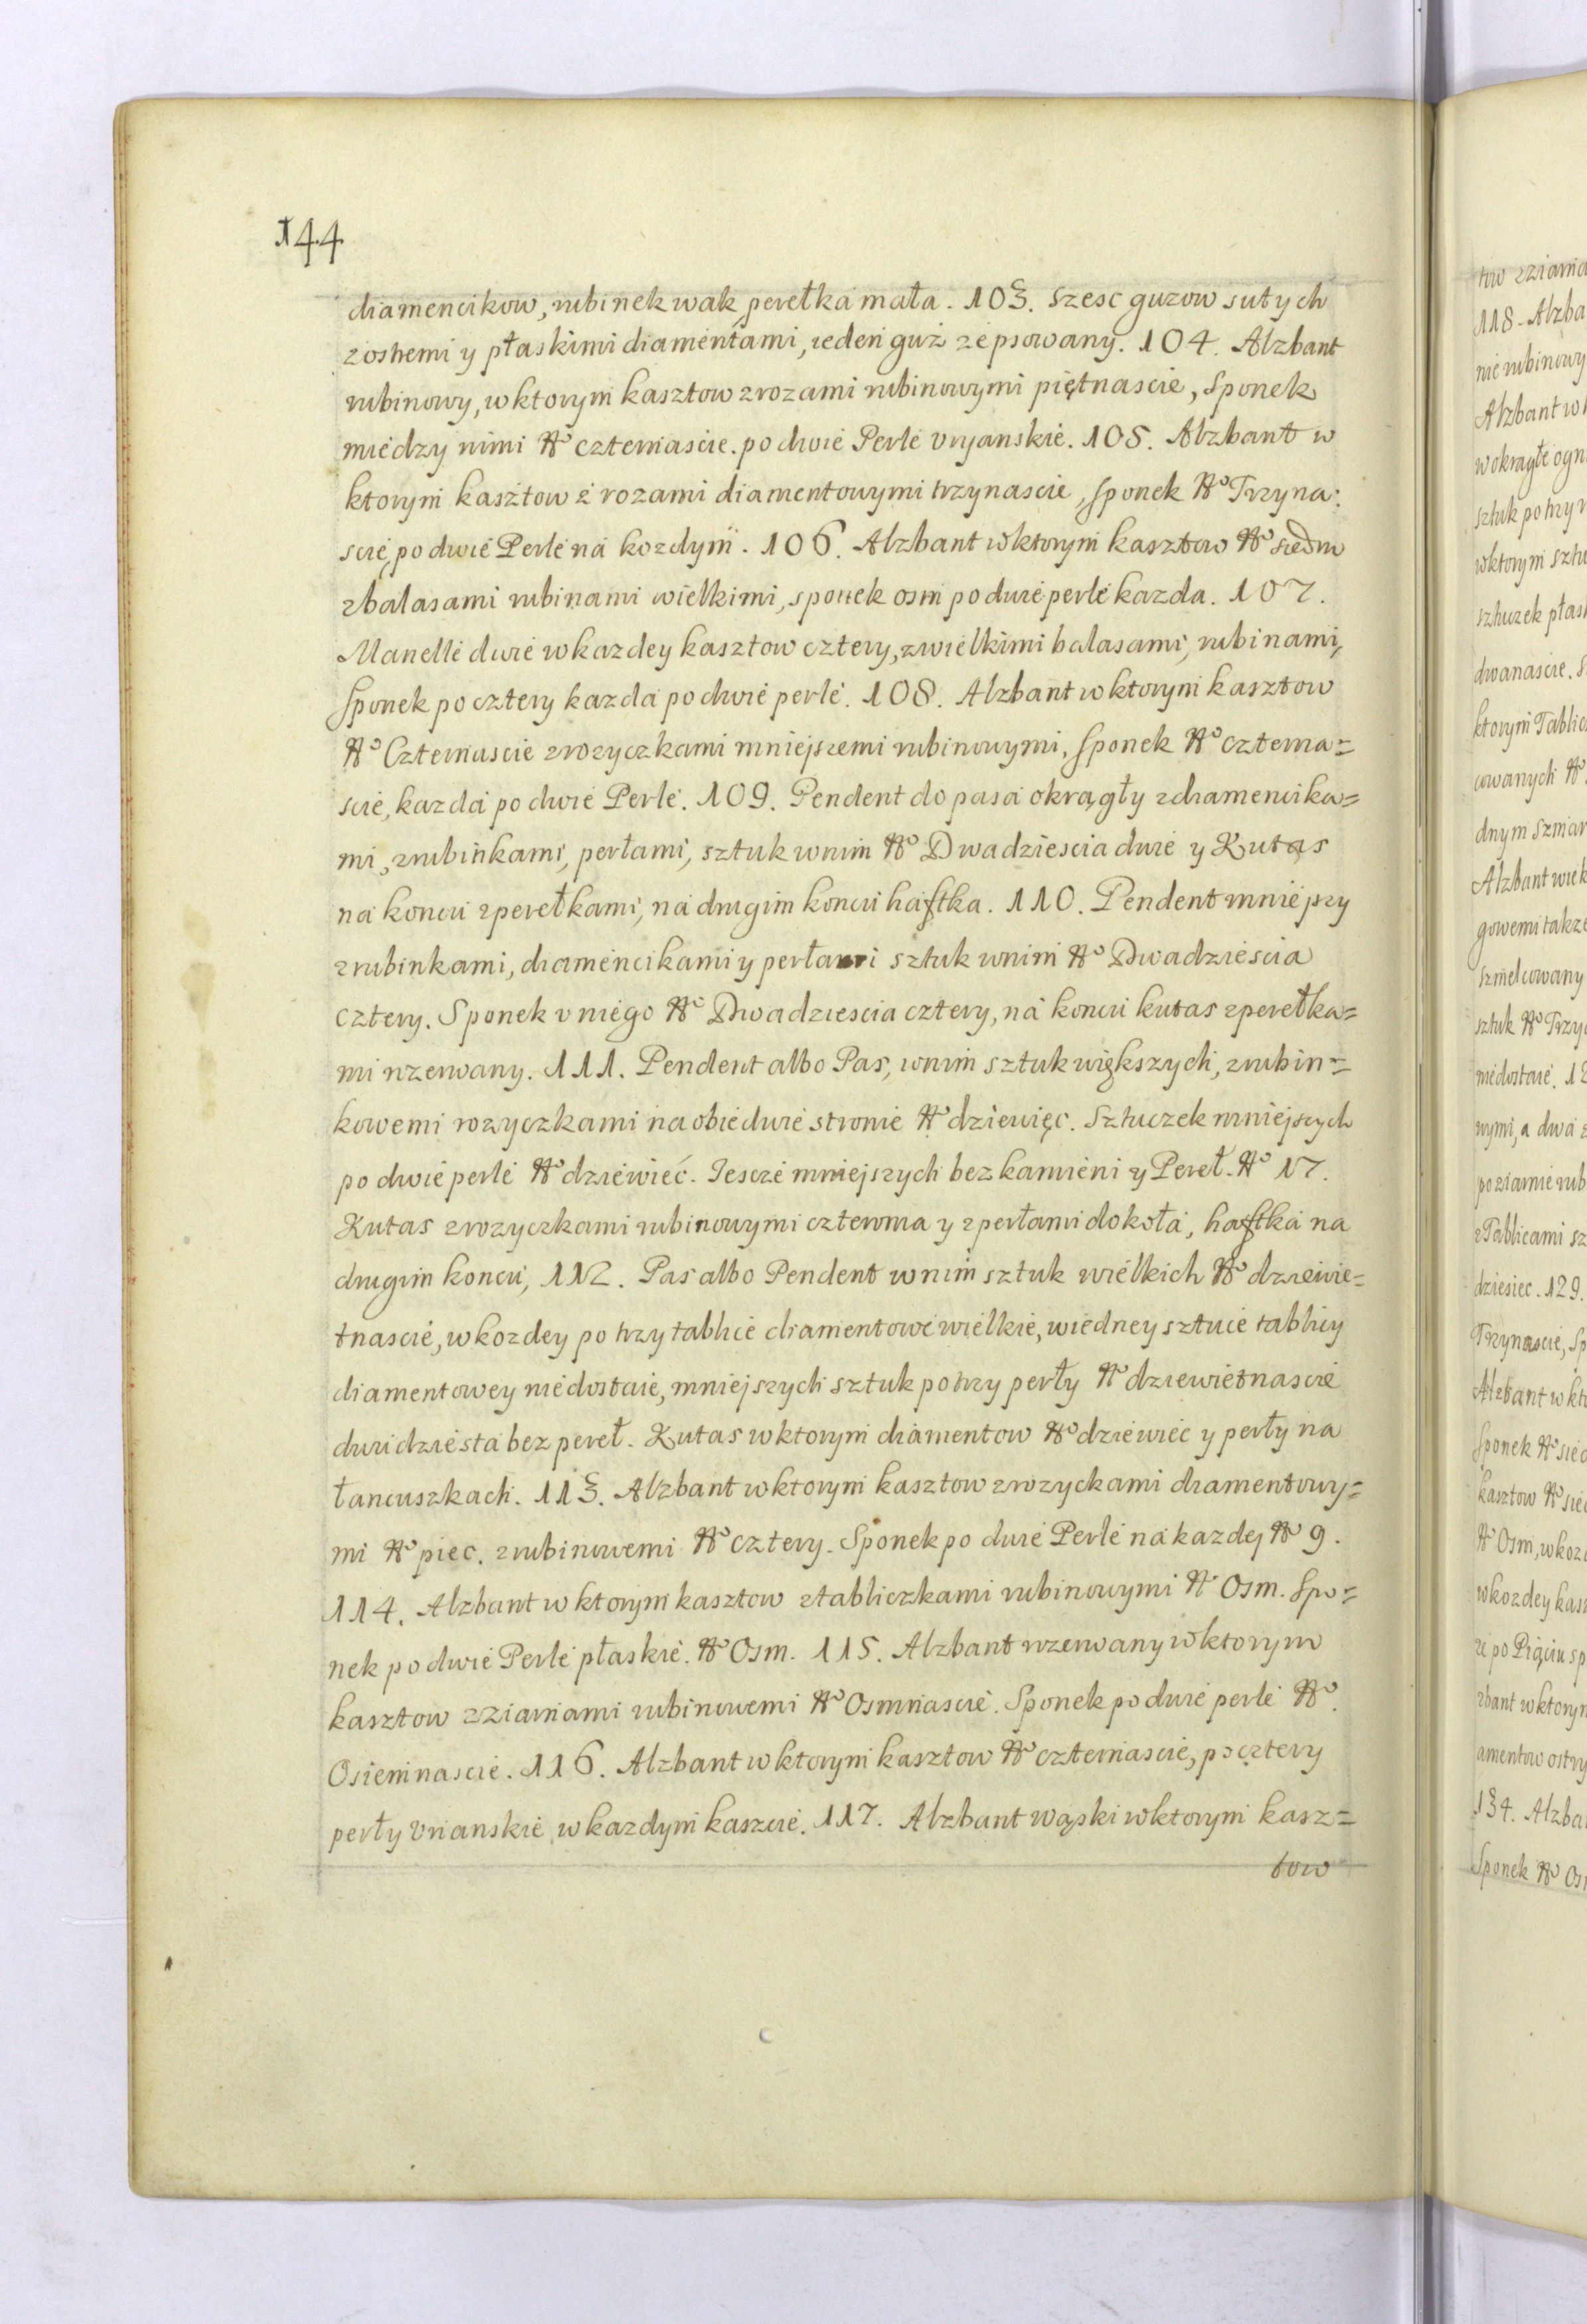 144
diamencikow, rubinek wak, perełka mała. 103. Szesc guzow sutych
z ostremi y płaskimi diamentami, ieden guz zepsowany. 104. Alzbant
rubinowy, w ktorym kasztow z rozami rubinowymi piętnascie, Sponek
miedzy nimi No czternascie. po dwie Perle uryanskie. 105. Alzbant w
ktorym kasztow z rozami diamentowymi trzynascie, Sponek No Trzyna:
scie, po dwie Perle na kozdym. 106. Alzbant w ktorym kasztow No siedm
z balasami rubinami wielkimi, sponek osm po dwie perle kazda. 107.
Manelle dwie w kazdey kasztow cztery, z wielkimi balasami, rubinami,
Sponek po cztery kazda po dwie perle. 108. Alzbant w ktorym kasztow
No Czternascie z rozyczkami mniejszemi rubinowymi, Sponek No czterna=
scie, kazda po dwie Perle. 109. Pendent do pasa okrągły z diamencika=
mi, z rubinkami, perłami, sztuk w nim No Dwadziescia dwie y Kutas
na koncu z perełkami, na drugim koncu haftka. 110. Pendent mniejszy
z rubinkami, diamencikami y perłami sztuk w nim No Dwadziescia
cztery. Sponek v niego No Dwadziescia cztery, na koncu kutas z perełka=
mi nzerwany. 111. Pendent albo Pas, w nim sztuk większych, z rubin=
kowemi rozyczkami na obie dwie stronie No dziewięc. Sztuczek mniejszych
po dwie perle No dziewieć. Iescze mniejszych bez kamieni y Pereł. No 17.
Kutas z rozyczkami rubinowymi czterma y z perłami dokoła, haftka na
drugim koncu, 112. Pas albo Pendent w nim sztuk wielkich No dziewie=
tnascie, w kozdey po trzy tablice diamentowe wielkie, w iedney sztuce tablicy
diamentowey niedostaie, mniejszych sztuk po trzy perły No dziewietnascie
dwudziesta bez pereł. Kutas w ktorym diamentow No dziewiec y perły na
łancuszkach. 113. Alzbant w ktorym kasztow z rozyckami diamentowy=
mi No piec. z rubinowemi No cztery. Sponek po dwie Perle na kazdej No 9.
114. Alzbant w ktorym kasztow z tabliczkami rubinowymi No Osm. Spo=
nek po dwie Perle płaskie. No Osm. 115. Alzbant rozerwany w ktorym
kasztow z ziarnami rubinowemi No Osmnascie. Sponek po dwie perle No
Osiemnascie. 116. Alzbant w ktorym kasztow No czternascie, po cztery
perły Vrianskie w kazdym kaszcie. 117. Alzbant wąski w ktorym kasz=
tow